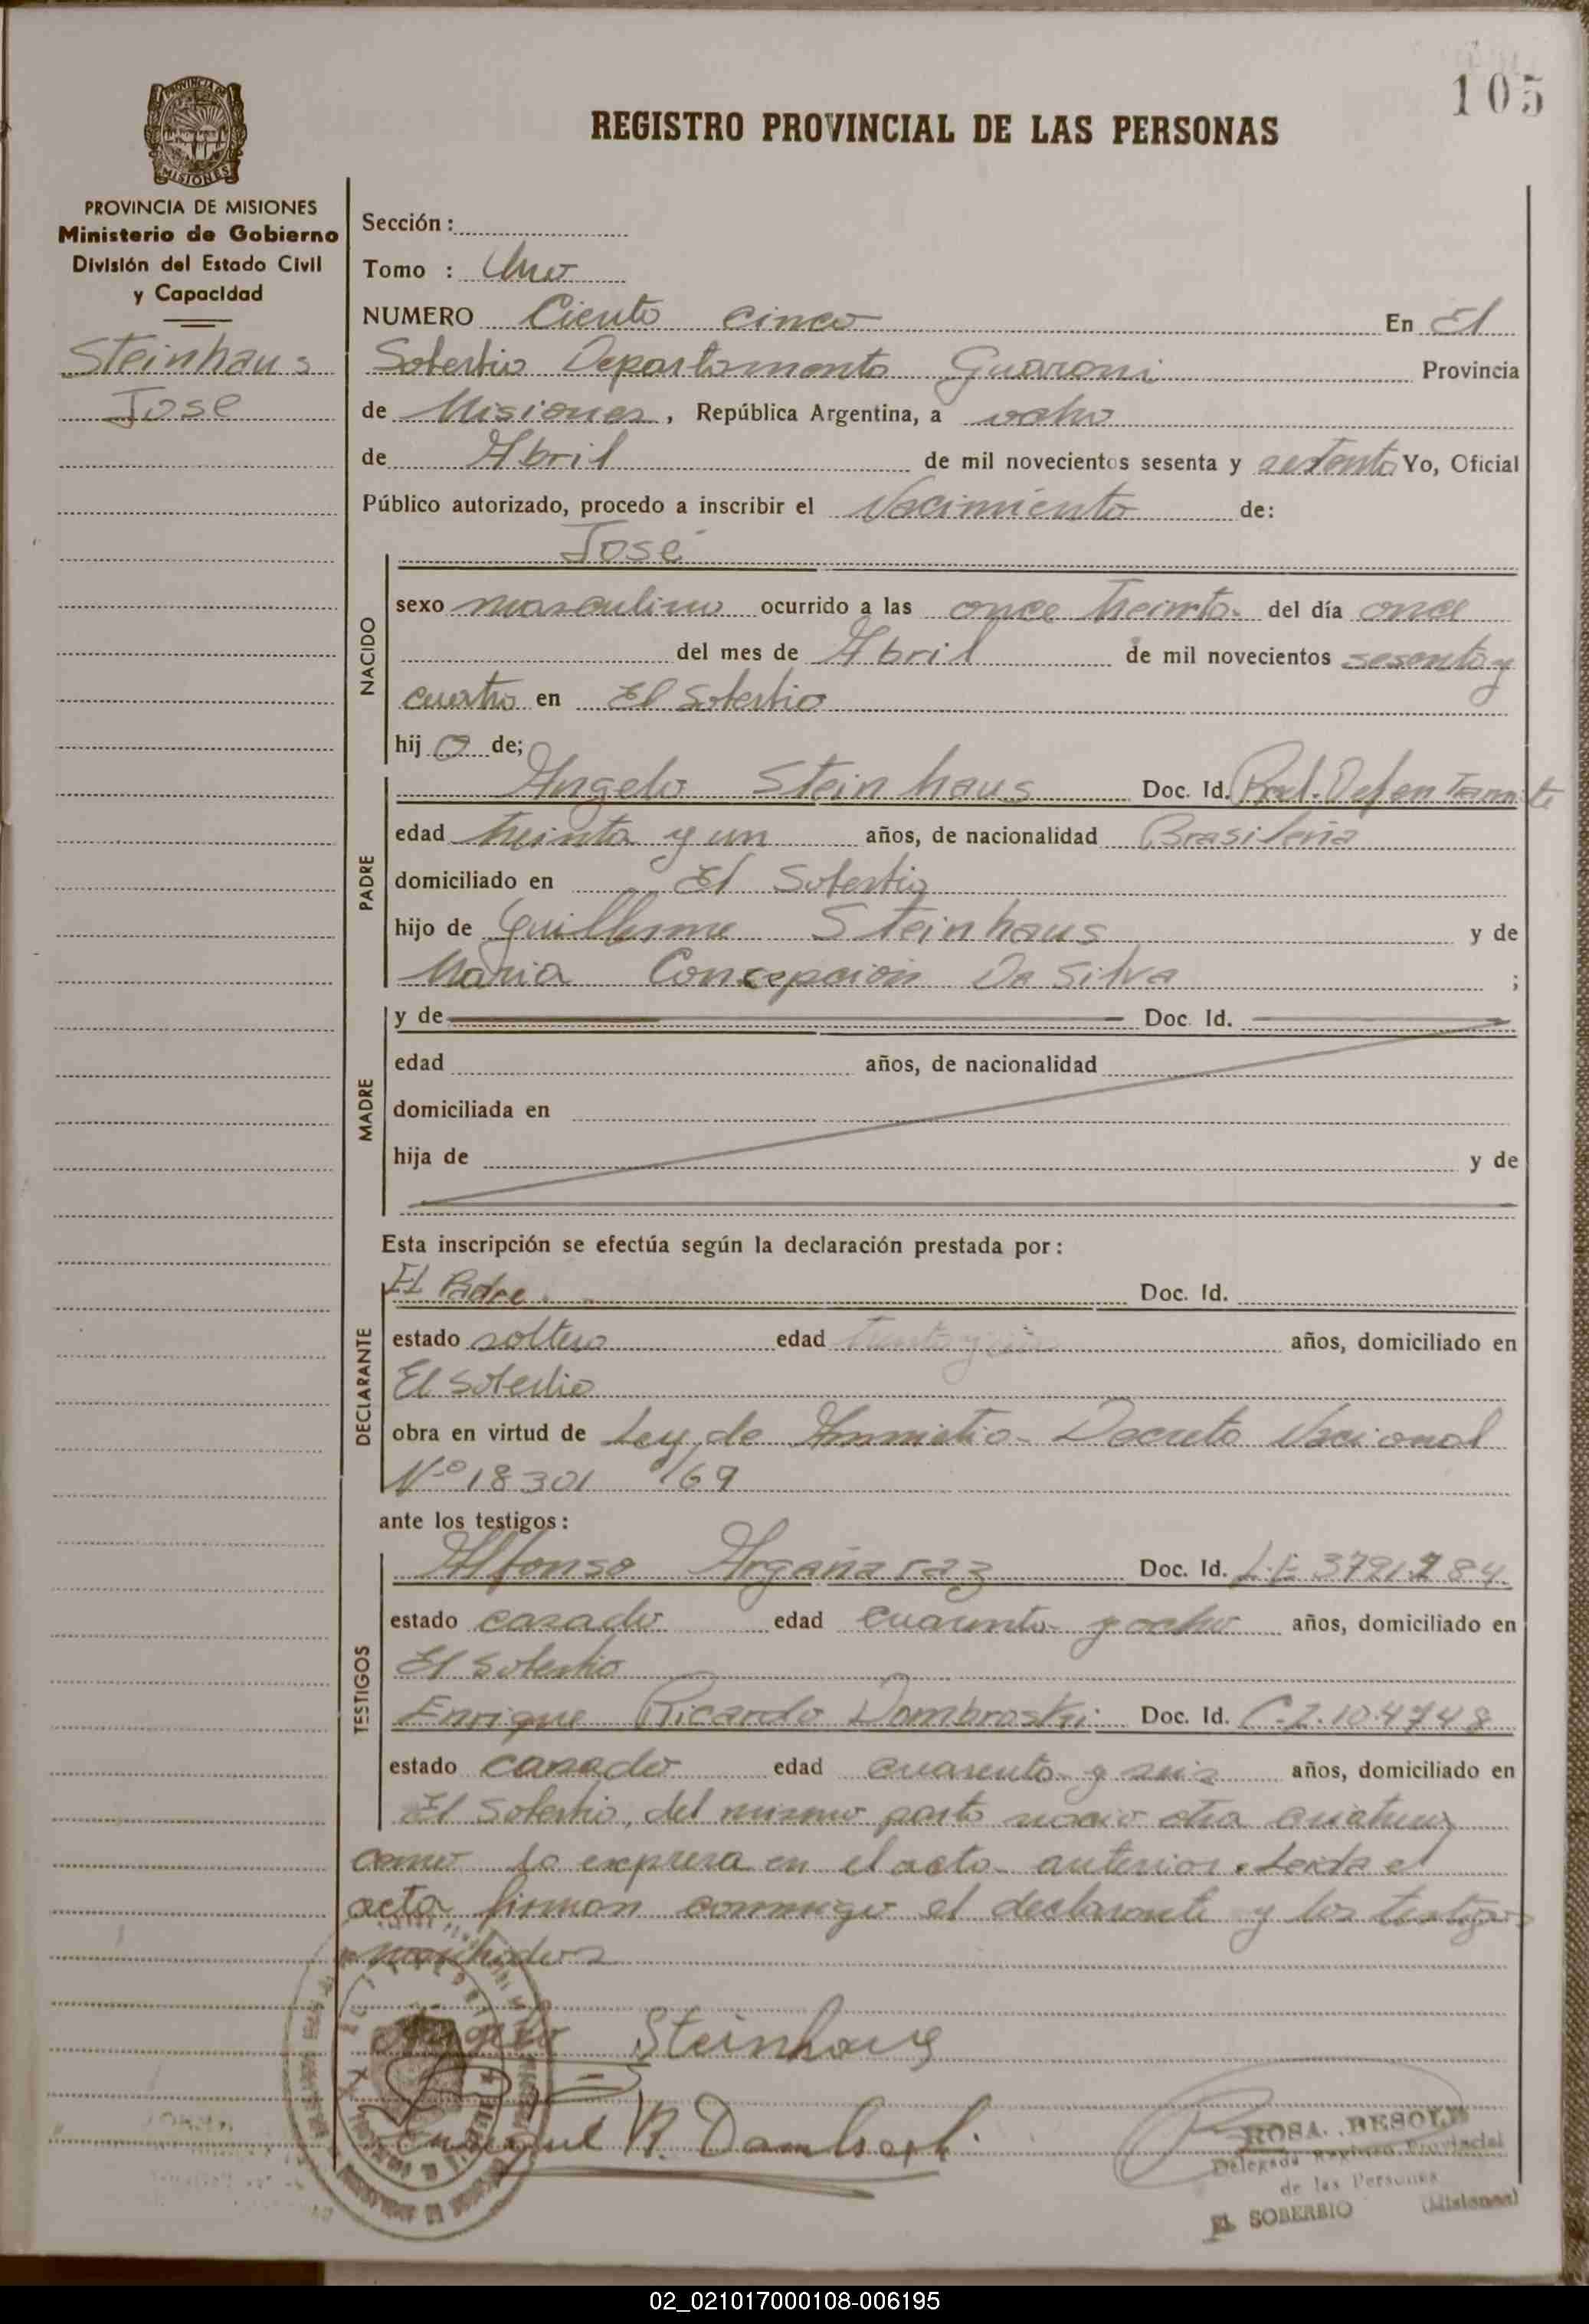 105
REGISTRO PROVINCIAL DE LAS PERSONAS
PROVINCIA DE MISIONES
MISIONES
PROVINCIA DE MISIONES
Ministerio de Gobierno
División del Estado Civil
y Capacidad
Steinhaus
Jose
Sección :
Tomo : Uno
NUMERO Ciento cinco En El
Soberbio Departamento Guarani Provincia
de Misiones, República Argentina, a ocho
de Abril de mil novecientos sesenta y setenta Yo, Oficial
Público autorizado, procedo a inscribir el Nacimiento de:
José
NACIDO
sexo masculino ocurrido a las once treinta del día once
del mes de Abril de mil novecientos sesenta y
cuatro en El Soberbio
hij o de;
PADRE
Angelo Steinhaus Doc. Id. Rad. Def en Tramite
edad treinta y un años, de nacionalidad Brasileña
domiciliado en El Soberbio
hijo de Guillerme Steinhaus y de
Maria Concepcion Da Silva ;
MADRE
y de Doc. Id.
edad años, de nacionalidad
domiciliada en
hija de y de
Esta inscripción se efectúa según la declaración prestada por:
DECLARANTE
El Padre. Doc. Id.
estado soltero edad treinta y un años, domiciliado en
El Soberbio
obra en virtud de Ley de Amnistia Decreto Nacional
Nº 18301/69
ante los testigos:
TESTIGOS
Alfonso Argañaraz Doc. Id. L.E 3791.284.
estado casado edad cuarenta y ocho años, domiciliado en
El Soberbio
Enrique Ricardo Dombroski Doc. Id. C.I. 104748
estado casado edad cuarenta y seis años, domiciliado en
El Soberbio, del mismo parto nacio otra criatura
como lo expresa en el acta anterior. Leida el
acta, firman conmigo el declarante y los testigos
nombrados
Angelo Steinhaus
Enrique R. Dombroski
ROSA BESOLD
Delegada Registro Provincial
de las Personas
EL SOBERBIO (Misiones)
02_021017000108-006195